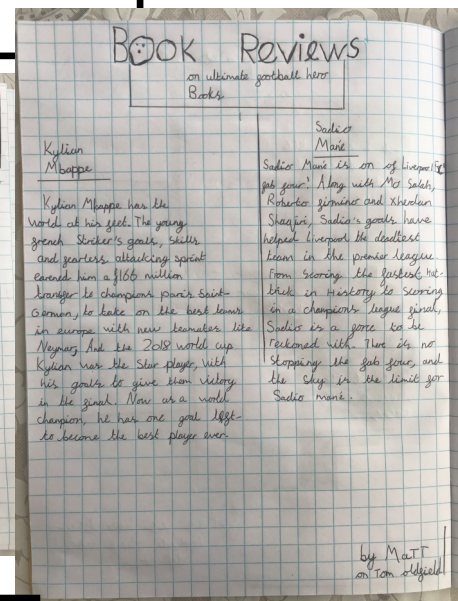 Book Reviews
on ultimate football hero
Books
Kylian
Mbappe
Kylian Mbappe has the
world at his feet. The young
french Striker's goals, skills
and fearless attacking sprint
earned him a $166 million
transfer to champions paris Saint-
German, to take on the best teams
in europe with new teamates like
Neymar, And the 2018 world cup
Kylian was the Star player, with
his goals to give them victory
in the final. Now as a world
champion, he has one goal left-
to become the best player ever.
Sadio
Mane
Sadio Mane is on of Liverpool FC
fab four. Along with Mo Salah,
Roberto firmino and Xherdan
Shaqiri, Sadio's goals have
helped Liverpool the deadliest
team in the premier league
From scoring the fastest hat-
trick in History to Scoring
in a champions league final,
Sadio is a force to be
reckoned with. There is no
Stopping the fab four, and
the sky is the limit for
Sadio mane.
by MaTT
on Tom oldfield